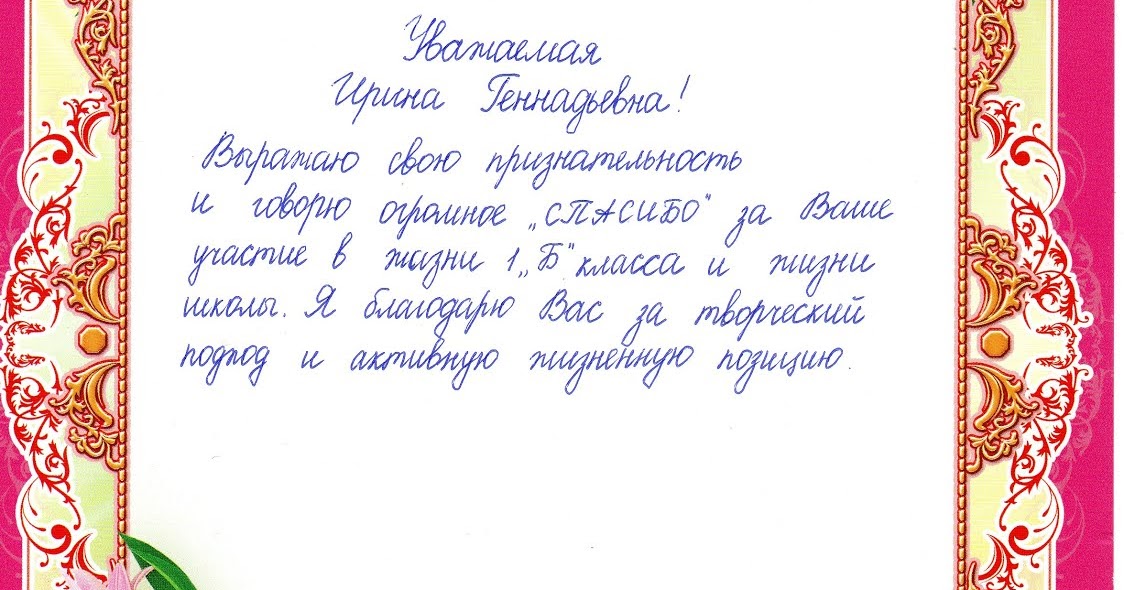 Уважаемая
Ирина Геннадьевна!
Выражаю свою признательность
и говорю огромное „СПАСИБО" за Ваше
участие в жизни 1 „Б" класса и жизни
школы. Я благодарю Вас за творческий
подход и активную жизненную позицию.